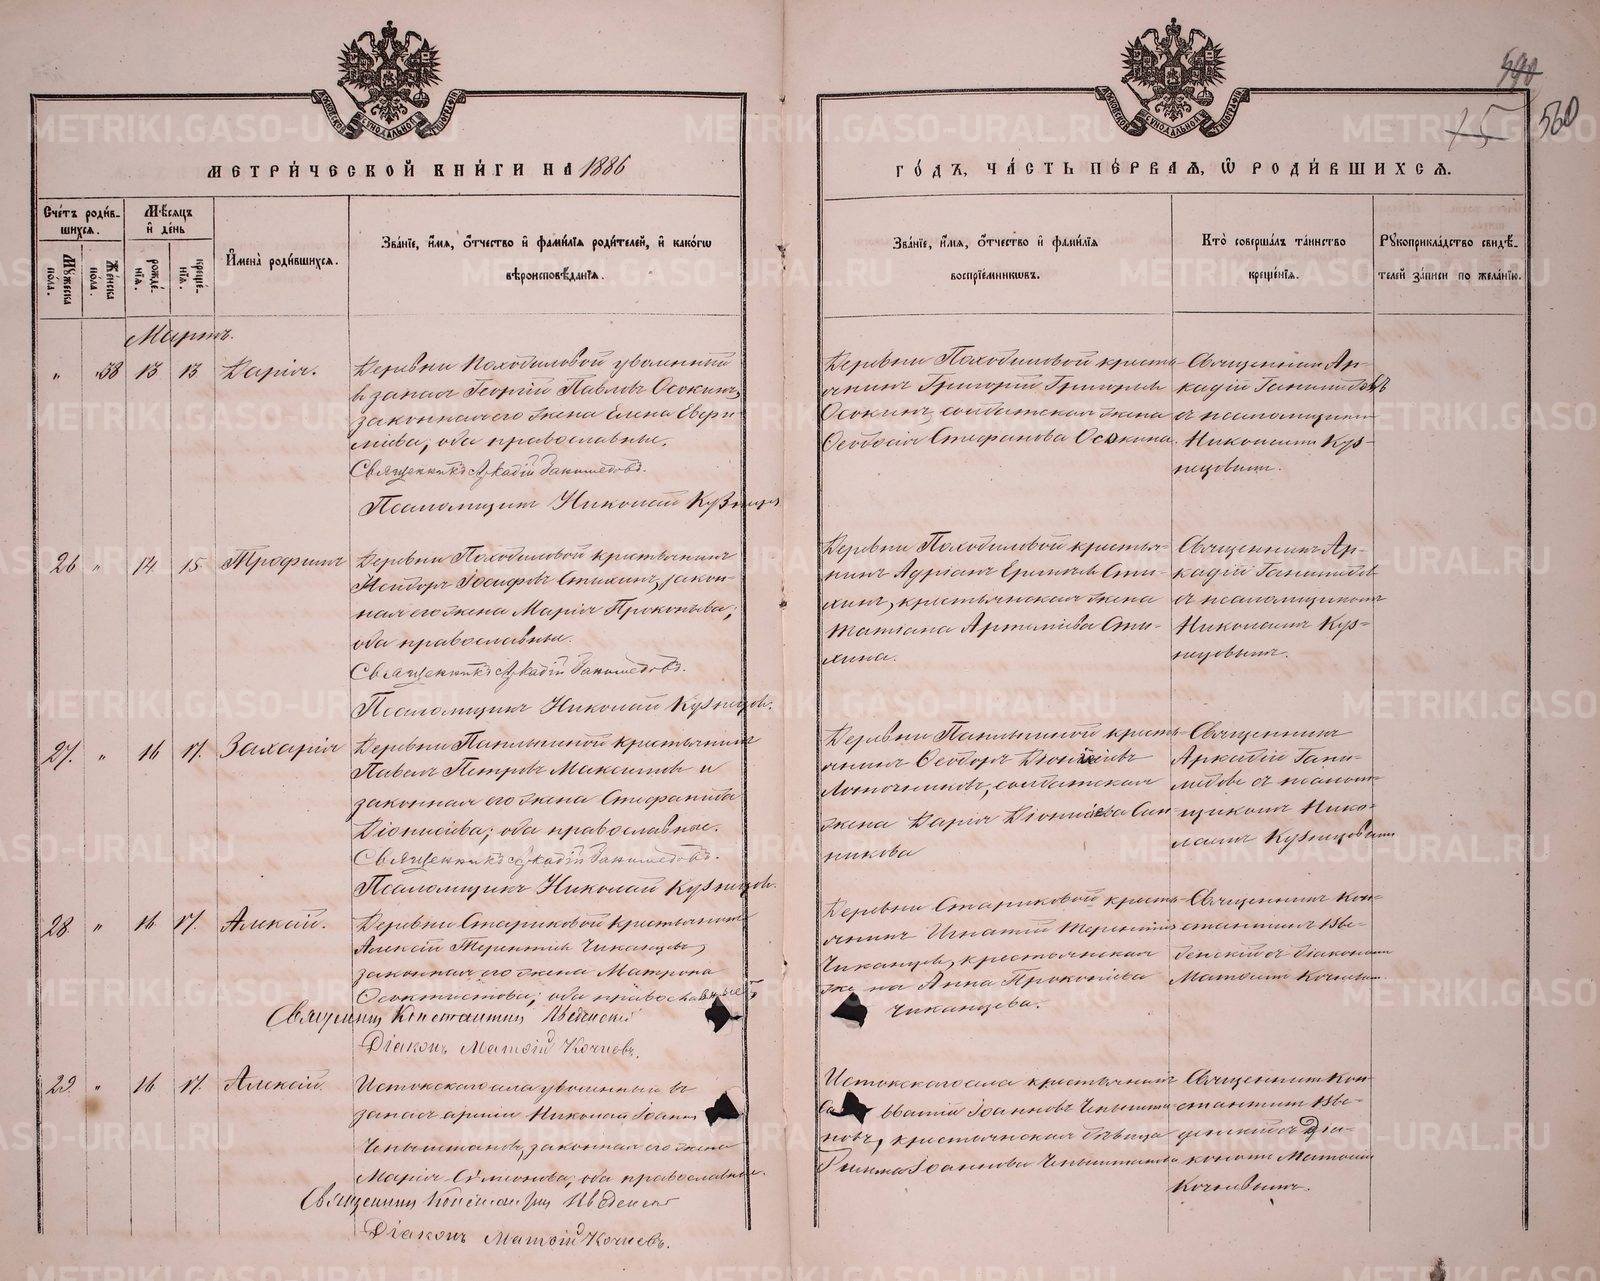 590
75
560
МЕТРИ́ЧЕСКОЙ КНИ́ГИ НА 1886
ГО́ДЪ, ЧА́СТЬ ПЕ́РВАѦ, Ѡ҆ РОДИ́ВШИХСѦ.
Сче́тъ роди́в-
шихсѧ.
Мѣ́сѧцъ
и҆ де́нь
Мꙋ́жеска
по́ла.
Же́нска
по́ла.
рожде́-
нїѧ.
креще́-
нїѧ.
И҆мена̀ роди́вшихсѧ.
Зва́нїе, и҆́мѧ, ѻ҆́тчество и҆ фамѝлїѧ роди́телей, и҆ како́гѡ
вѣроисповѣ́данїѧ.
Зва́нїе, и҆́мѧ, ѻ҆́тчество и҆ фамѝлїѧ
воспрїе́мникѡвъ.
Кто̀ соверша́лъ та́инство
креще́нїѧ.
Рꙋкоприкла́дство свидѣ́-
телей за́писи по жела́нїю.
Мартъ.
" 58 13 13 Дарія.
Деревни Походиловой уволенный
въ запасъ Георгій Павловъ Осокинъ,
законная его жена Елена
оба православные.
Священникъ Аркадій
Псаломщикъ Николай Кузнецов
Деревни Походиловой кресть-
янинъ Григорій Григорьевъ
Осокинъ, солдатская жена
Ѳеодосія Стефанова Осокина.
Священникъ Ар-
кадій
съ псаломщикомъ
Николаемъ Куз-
нецовымъ.
26 " 14 15 Трофимъ
Деревни Походиловой крестьянинъ
Исидоръ Іосифовъ Стихинъ, закон-
ная его жена Марія Прокопьева;
оба православные.
Священникъ Аркадій
Псаломщикъ Николай Кузнецовъ.
Деревни Походиловой крестья-
нинъ Адріанъ Сти-
хинъ, крестьянская жена
Татіана Артеміева Сти-
хина.
Священникъ Ар-
кадій
съ псаломщикомъ
Николаемъ Куз-
нецовымъ.
27. " 16 17. Захарія
Деревни крестьянинъ
Павелъ Петровъ Максимовъ и
законная его жена Стефанида
Діонисіева; оба православные.
Священникъ Аркадій
Псаломщикъ Николай Кузнецовъ.
Деревни кресть-
янинъ Ѳеодоръ Діонисіевъ
солдатская
жена Дарія Діонисіева Сан-
никова
Священникъ
Аркадій
съ псалом-
щикомъ Нико-
лаемъ Кузнецовымъ
28 " 16 17. Алексій.
Деревни Стариковой крестьянинъ
Алексій Терентіевъ Чиканцевъ,
законная его жена Матрона
Ѳеоктистова; оба православные
Священникъ Константинъ Введенскій
Діаконъ Матѳій Кочневъ.
Деревни Стариковой кресть-
янинъ Игнатій Терентіевъ
Чиканцевъ, крестьянская
же на Анна Прокопіева
Чиканцева.
Священникъ Кон-
стантинъ Вве-
денскій съ діакономъ
Матѳіемъ Кочневым
29. " 16 17. Алексій
Истокскаго села уволенный въ
запасъ арміи Николай Іоанн
законная его жена
Марія Симеонова; оба православные.
Священникъ Константинъ Введенск
Діаконъ Матѳій Кочневъ.
Истокскаго села крестьянинъ
Іоанновъ
крестьянская дѣвица
Іоаннова
Священникъ Кон-
стантинъ Вве-
денскій съ Діа-
кономъ Матѳіем
Кочневымъ.